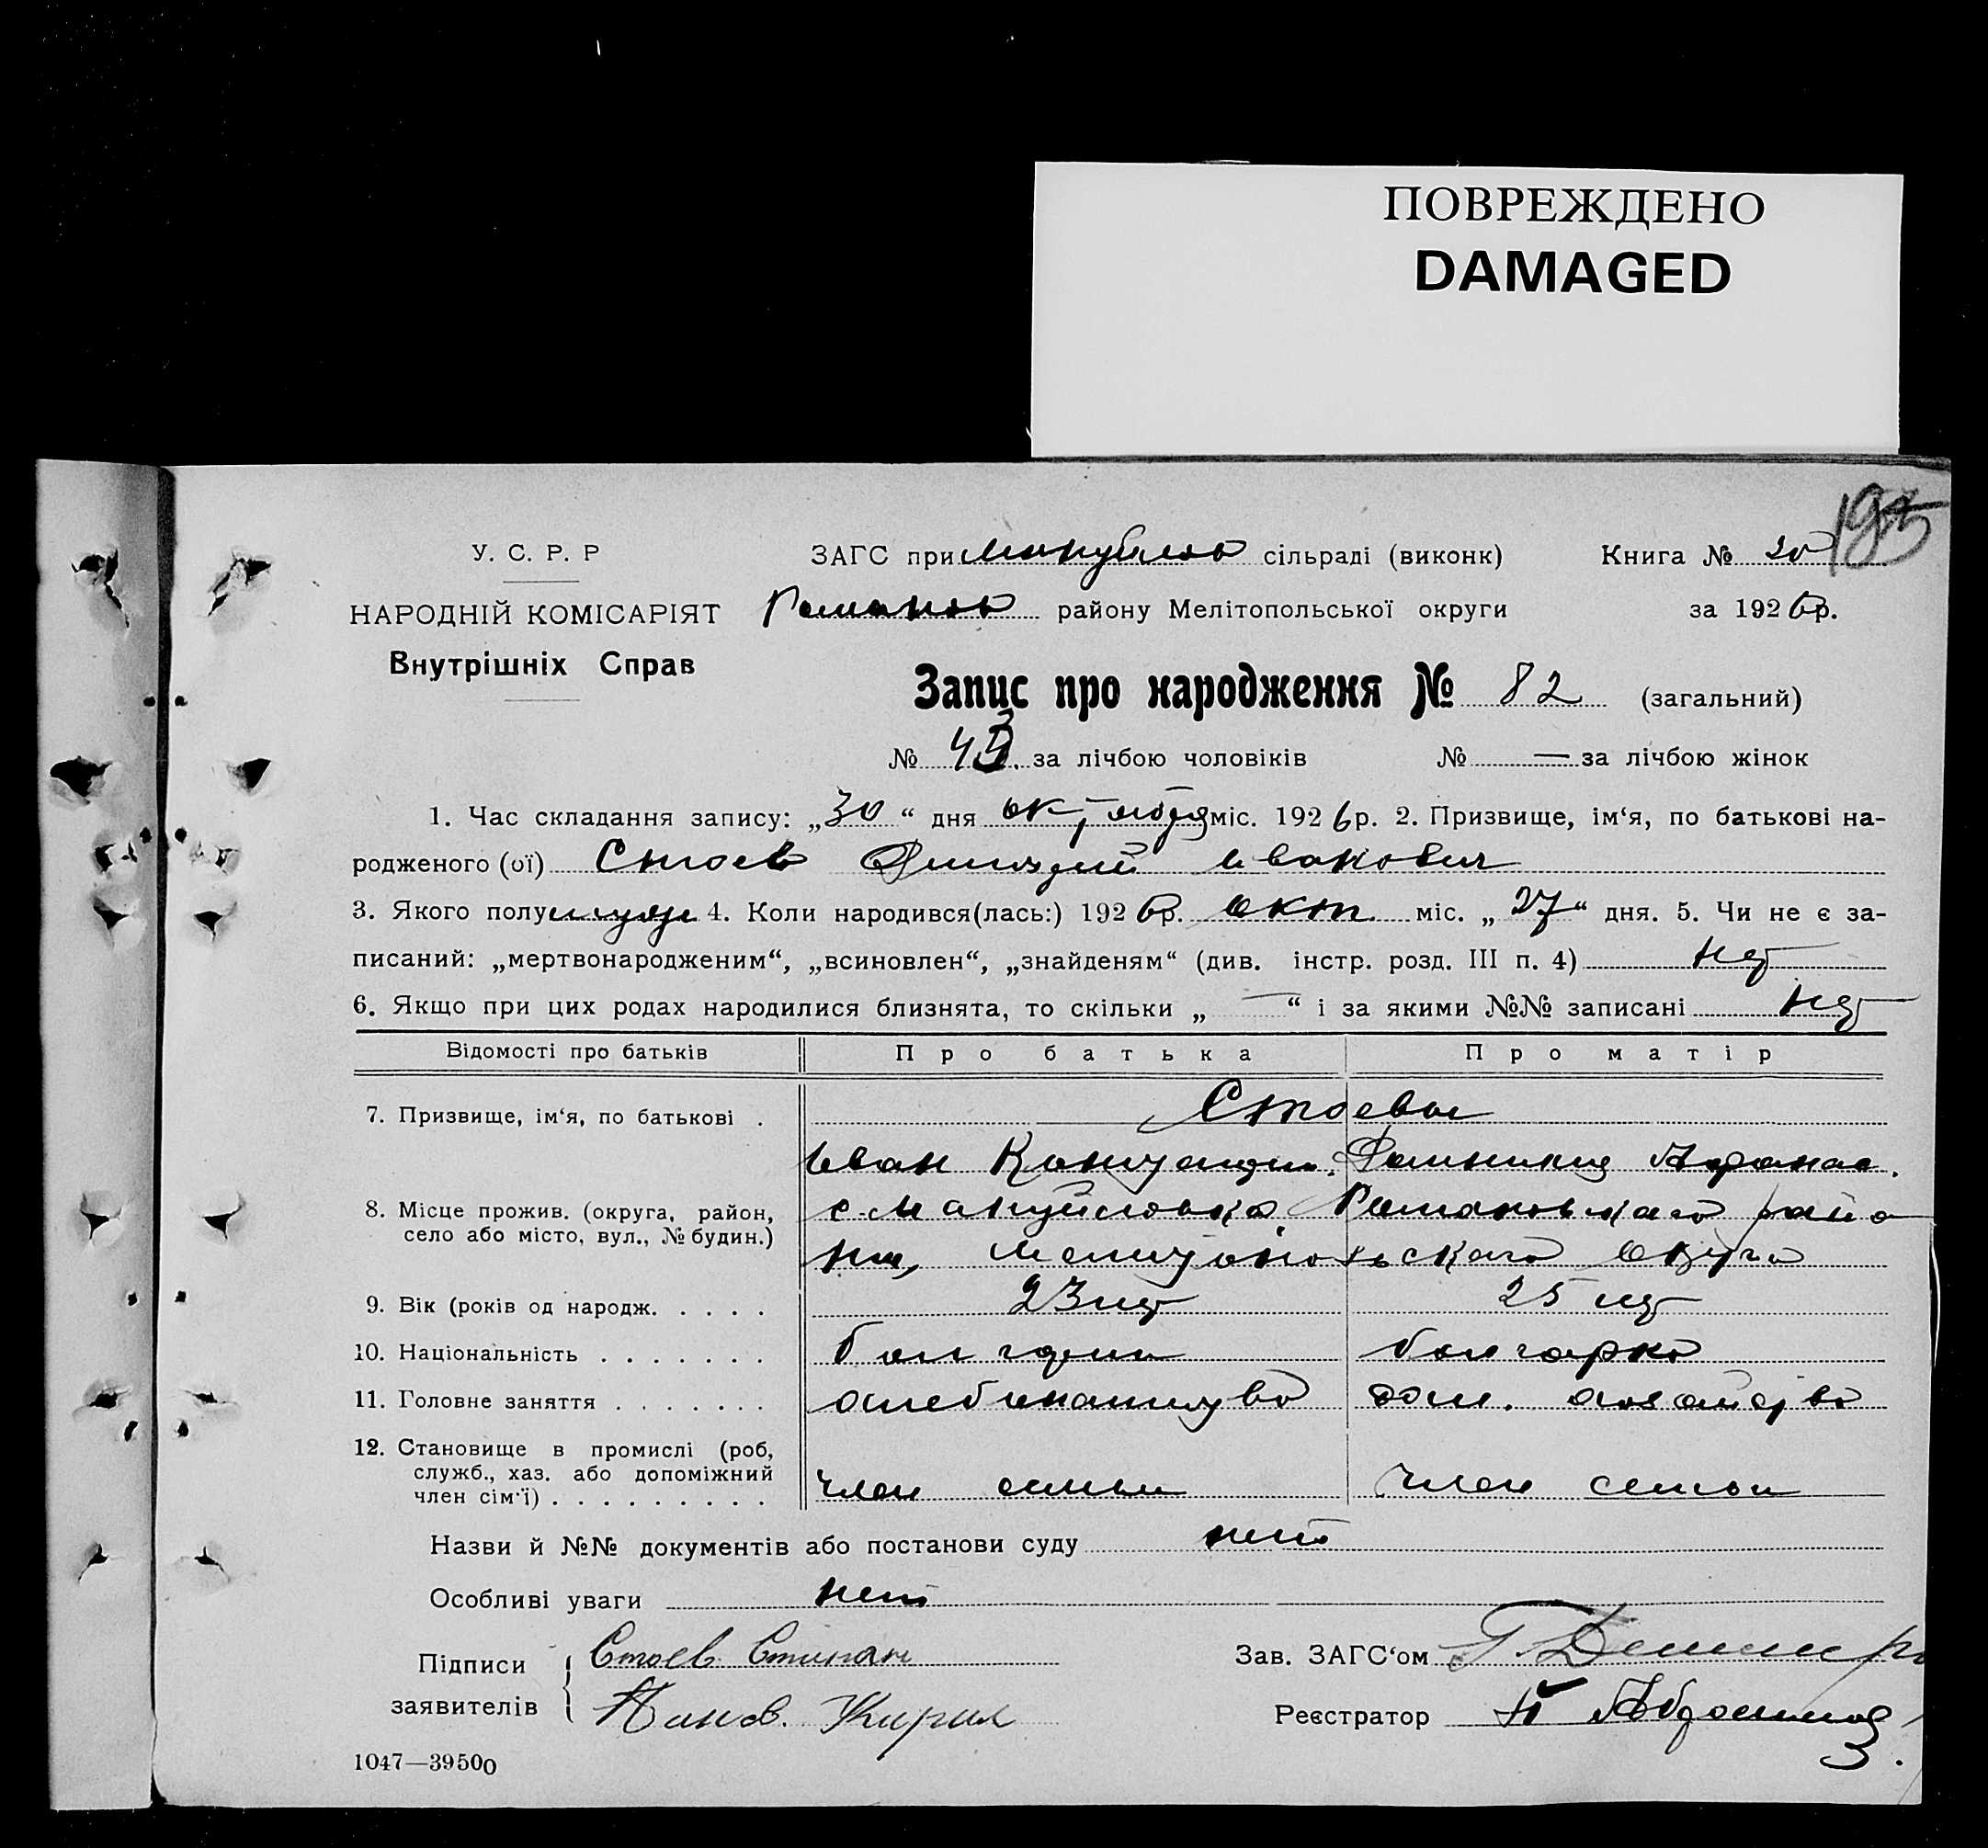 ПОВРЕЖДЕНО
DAMAGED
195
У. С. Р. Р
ЗАГС при сільраді (виконк)
Книга № 20
НАРОДНІЙ КОМІСАРІЯТ
району Мелітопольської округи
за 1926р.
Внутрішніх Справ
Запис про народження № 82 (загальний)
№ за лічбою чоловіків № — за лічбою жінок
1. Час складання запису: „30“ дня октября міс. 1926р. 2. Призвище, ім‘я, по батькові на-
родженого (ої) Стоев Дмитрий Иванович
3. Якого полу мужс 4. Коли народився(лась:) 1926р. Окт міс. „27“ дня. 5. Чи не є за-
писаний: „мертвонародженим“, „всиновлен“, „знайденям“ (див. інстр. розд. III п. 4) нет
6. Якщо при цих родах народилися близнята, то скільки „—“ і за якими №№ записані нет
Відомості про батьків Про батька Про матір
7. Призвище, ім‘я, по батькові . Стоевы
Иван Афанас.
8. Місце прожив. (округа, район, с. Мануйловка, Романовского райо
село або місто, вул., № будин.)
на, Мелитопольского Округа
9. Вік (років од народж. . . . . 23 лет 25 лет
10. Національність . . . . . . . болгарин болгарка
11. Головне заняття . . . . . . . хлебопашество дом. хозайство
12. Становище в промислі (роб,
служб., хаз. або допоміжний
член сім‘ї) . . . . . . . . . . член семьи член семьи
Назви й №№ документів або постанови суду нет
Особливі уваги нет
Підписи Стоев Степан
Зав. ЗАГС‘ом
заявителів Кирил
Реєстратор
1047—39500